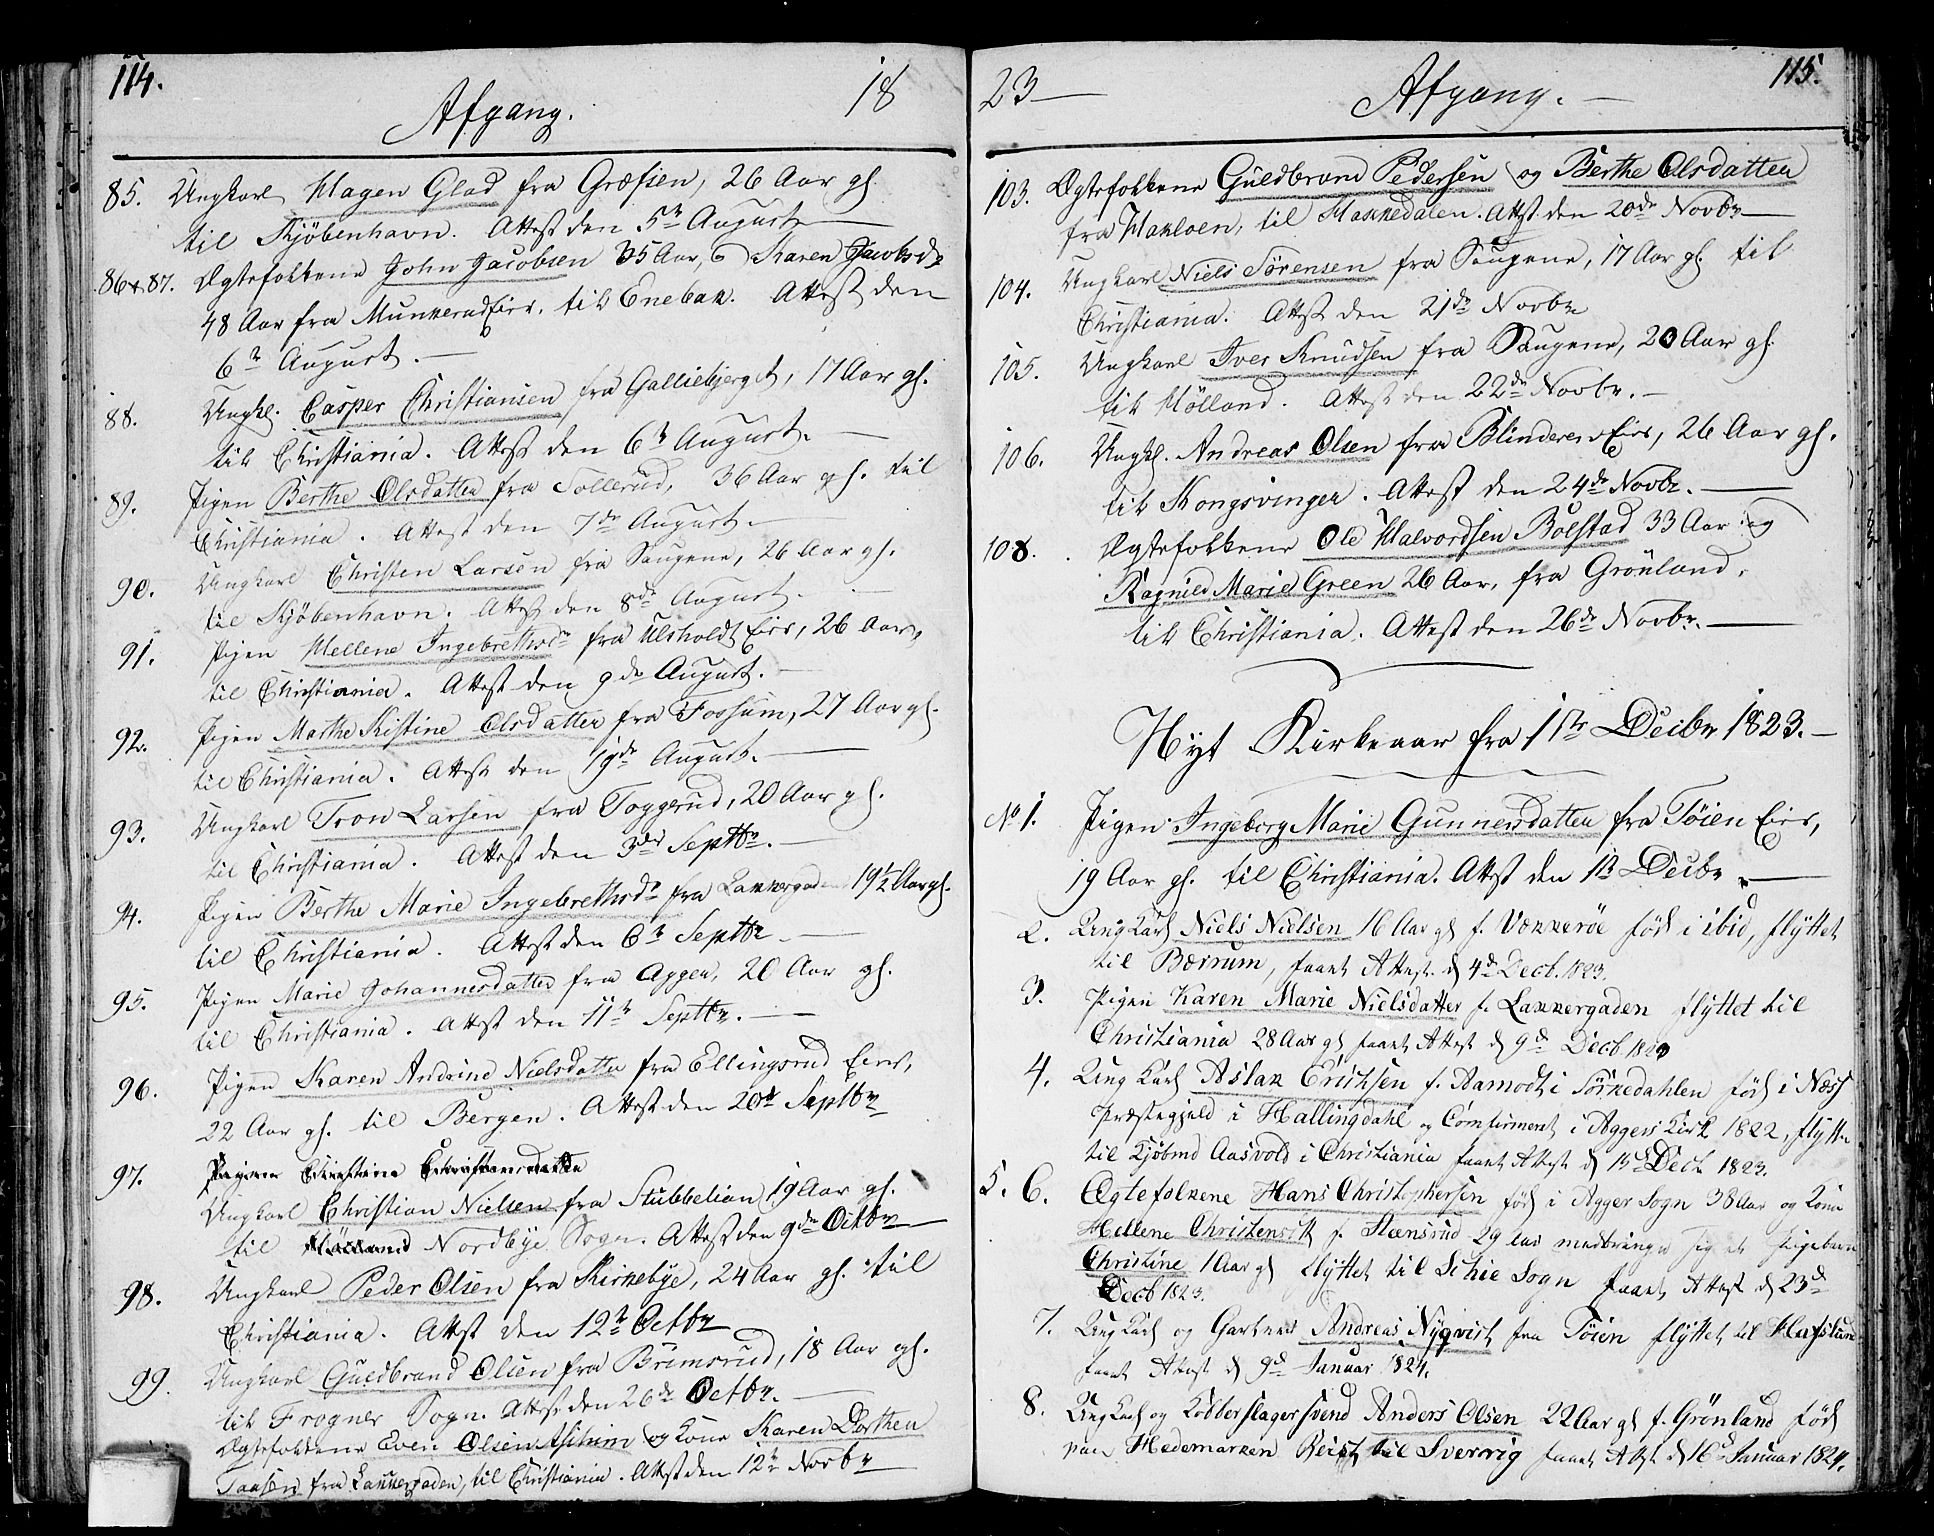 114.
Afgang.
18
85. Ungkarl Hagen Glad fra Græfsen, 26 Aar gl.
til Kjöbenhavn. Attest den 5te August
86 & 87. Ægtefolkene John Jacobsen 35 Aar, og Karen Jacobsdr
48 Aar fra Munkerud Eie, til Enebak. Attest den
6te August.
88. Ungkl. Casper Christiansen fra Galliebjerget, 17 Aar gl.
til Christiania. Attest den 6te August.
89. Pigen Berthe Olsdatter fra Sollerud, 36 Aar gl. til
Christiania. Attest den 7de August.
90. Ungkarl Christen Larsen fra Saugene, 26 Aar gl.
til Kjöbenhavn. Attest den 8de August.
91. Pigen Hellene Ingebrethsdr fra Ulsholdt Eie, 26 Aar,
til Christiania. Attest den 9de August.
92. Pigen Marthe Kistine Olsdatter fra Fossum, 27 Aar gl.
til Christiania. Attest den 19de August.
93. Ungkarl Tron Larsen fra Toggerud, 20 Aar gl.
til Christiania. Attest den 3die Septbr.
94. Pigen Berthe Marie Ingebrethsdr fra Lakkergaden 19 1/2 Aar gl.
til Christiania. Attest den 6te Septbr.
95. Pigen Marie Johannesdatter fra Agger, 20 Aar gl.
til Christiania. Attest den 11te Septbr.
96. Pigen Karen Andrine Nielsdatter fra Ellingsrud Eier,
22 Aar gl. til Bergen. Attest den 20de Septbr
97. Pigen Christine Christiansdatter
Ungkarl Christian Nielsen fra Stubbelian 19 Aar gl.
til Nordbye Sogn. Attest den 9de Octbr
98. Ungkarl Peder Olsen fra Kirkebye, 24 Aar gl. til
Christiania. Attest den 12te Octbr
99. Ungkarl Guldbrand Olsen fra Brimsrud, 18 Aar gl.
til Frogner Sogn. Attest den 26de Octbr.
Ægtefolkene Even Olsen og Kone Karen Dorthea
fra Lakkergaden, til Christiania. Attest den 12te Novbr
23
Afgang.
115.
103. Ægtefolkene Guldbrand Pedersen og Berthe Olsdatter
fra Makloen, til Hakkedalen. Attest den 20de Novbr
104. Ungkarl Niels Sörensen fra Saugene, 17 Aar gl. til
Christiania. Attest den 21de Novbr
105. Ungkarl Iver Knudsen fra Saugene, 20 Aar gl.
til Hölland. Attest den 22de Novbr.
106. Ungkl. Andreas Olsen fra Blinderen Eie, 26 Aar gl.
til Kongsvinger. Attest den 24de Novbr.
108. Ægtefolkene Ole Halvordsen Bolstad 33 Aar og
Ragnild Marie Green 26 Aar, fra Grönland,
til Christiania. Attest den 26de Novbr.
Nyt Kirkeaar fra 1ste Decbr 1823.
No 1. Pigen Ingeborg Marie Gunnersdatter fra Töien Eie,
19 Aar gl. til Christiania. Attest den 1ste Decbr
2. Ung Karl Niels Nielsen Aar gl f. Vækkeröe föd i ibid, flyttet
til Bærrum, faaet Attest d 4de Decb. 1823.
3. Pigen Karen Marie Nielsdatter f. Lakkergaden flyttet til
Christiania 28 Aar gl faaet Attest d 9de Decb 1823
4. Ung Karl Aslak Erichsen f. Aamodt i Sörkedahlen föd i Næss
Præstegjeld i Hallingdahl og Comfirmeret i Aggers Kirk 1822, flytter
til Kjöbmd Aasvold i Christiania faaet Attest d 13de Decb 1823.
5. 6. Ægtefolkene Hans Christophersen föd i Agger Sogn 38 Aar og Kone
Hellene Christensdt f. Steensrud 29 Aar medbringer sig et Pigebarn
Christine 1 Aar gl flyttet til Schie Sogn faaet Attest d 23d
Decb 1823.
7. Ung Karl og Gartner Andreas Nyqvist fra Töien flyttet til Hafslun
faaet Attest d 9de Januar 1824.
8. Ung Karl og Kobberslager svend Anders Olsen 22 Aar gl f. Grönland föd
paa Hedemarken Reist til Sverrig faaet Attest d 16d Januar 1824.